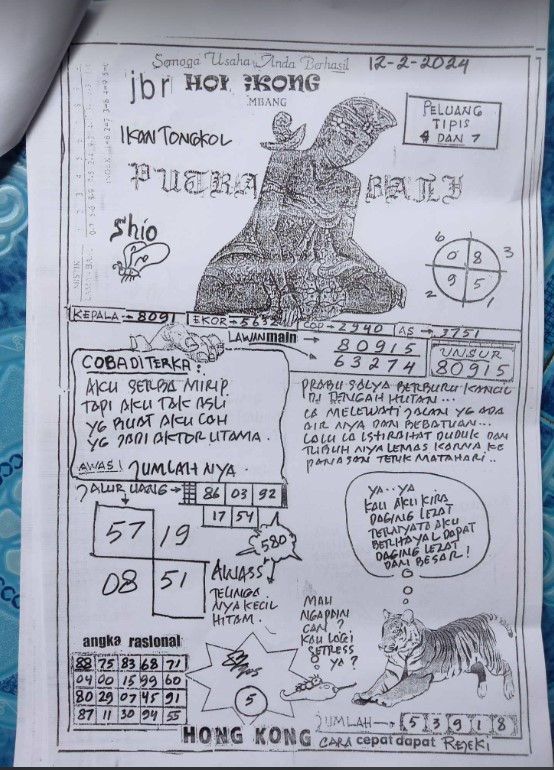 Semoga Usaha Anda Berhasil
12-2-2024
jbr HONGKONG
MBANG
PELUANG
TIPIS
4 DAN 7
IKAN TONGKOL
PUTRA BALI
Shio
6
0 8 3
9 5
2 1
KEPALA → 8091
EKOR → 5632
COP → 2940
AS → 3751
LAWAN main
80915
63274
UNSUR
80915
COBA DI TERKA :
AKU SERBA MIRIP
TAPI AKU TAK ASLI
YG BUAT AKU LAH
YG JADI AKTOR UTAMA .
AWAS ! JUMLAH NYA .
PRABU SALYA BERBURU KANCIL
DI TENGAH HUTAN ...
IA MELEWATI JALAN YG ADA
AIR NYA DAN BEBATUAN ...
LALU IA ISTIRAHAT DUDUK DAN
TUBUH NYA LEMAS KARNA KE
PANASAN TERIK MATAHARI ..
JALUR UANG →
86 03 92
17 54
57 19
08 51
580
AWASS
TELINGA
NYA KECIL
HITAM .
YA..YA
KAU AKU KIRA
DAGING LEZAT
TERNYATA AKU
BERHAYAL DAPAT
DAGING LEZAT
DAN BESAR !
MAU
NGAPAIN
CAN ?
KAU LAGI
SETRESS
YA ?
angka rasional
88 75 83 68 71
04 00 15 99 60
80 29 07 45 91
87 11 30 94 55
5
JUMLAH → 5 3 9 1 8
HONG KONG CARA cepat dapat REJEKI